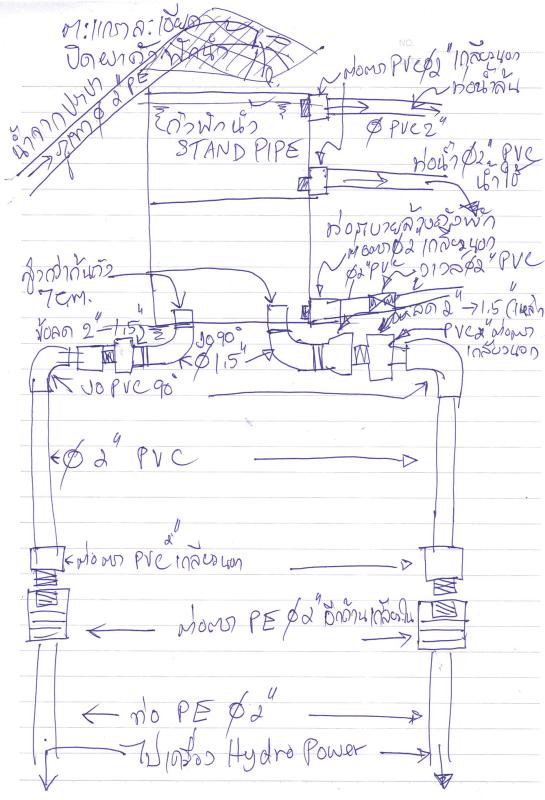 ตะแกรงละเอียด
ปิดฝาถังพักน้ำ
น้ำจากประปา
ภูเขา Ø 2" PE
ต่อตรง PVC Ø2" เกลียวนอก
ท่อน้ำล้น
Ø PVC 2"
ถังพักน้ำ
STAND PIPE
ท่อน้ำ Ø2" PVC
น้ำใช้
ท่อระบายล้างถังพัก
ต่อตรง Ø2 เกลียวนอก
Ø2" PVC
วาวล์ Ø2" PVC
สูงกว่าก้นถัง
7 cm.
ข้อลด 2"→1.5"
งอ 90°
Ø 1.5"
ลด 2"→1.5"
PVC 2" ต่อตรง
เกลียวนอก
งอ PVC 90°
Ø 2" PVC
ต่อตรง PVC 2" เกลียวนอก
ต่อตรง PE Ø2" อีกด้านเกลียวใน
ท่อ PE Ø 2"
ไปเครื่อง Hydro Power